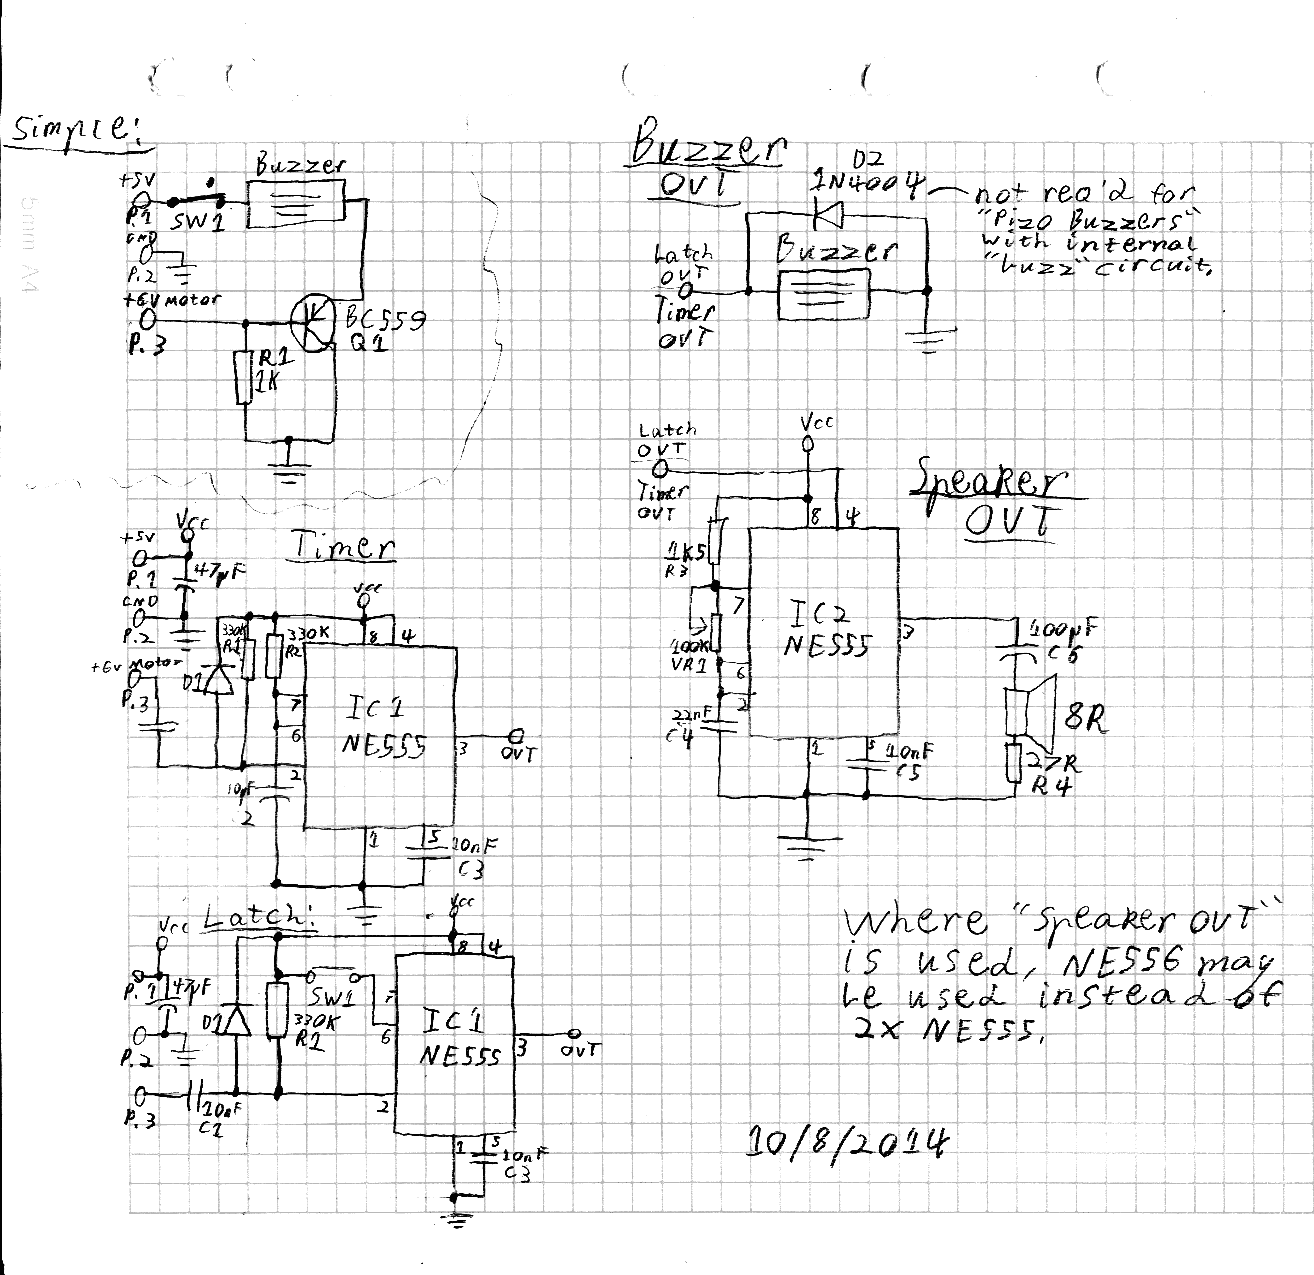 Simple:
Buzzer
+5V
P.1
SW1
GND
P.2
+6V Motor
P.3
BC559
Q1
R1
1K
Buzzer
OUT
D2
1N4004
not req'd for
"Pizo Buzzers"
with internal
"buzz" circuit.
Buzzer
Latch
OUT
Timer
OUT
Timer
Vcc
+5V
P.1
47µF
GND
P.2
+6V Motor
P.3
D1
330K
R1
330K
R2
Vcc
8
4
7
6
2
IC1
NE555
3
OUT
10µF
2
1
5
10nF
C3
Speaker
OUT
Vcc
Latch
OUT
Timer
OUT
8
4
1K5
R3
7
100K
VR1
6
2
22nF
C4
IC2
NE555
3
100µF
C6
8R
27R
R4
1
5
10nF
C5
Latch:
Vcc
P.1
47µF
P.2
P.3
10nF
C1
D1
SW1
330K
R1
Vcc
8
4
7
6
2
IC1
NE555
3
OUT
1
5
10nF
C3
Where "Speaker OUT"
is used, NE556 may
be used instead of
2x NE555.
10/8/2014
5mm A4